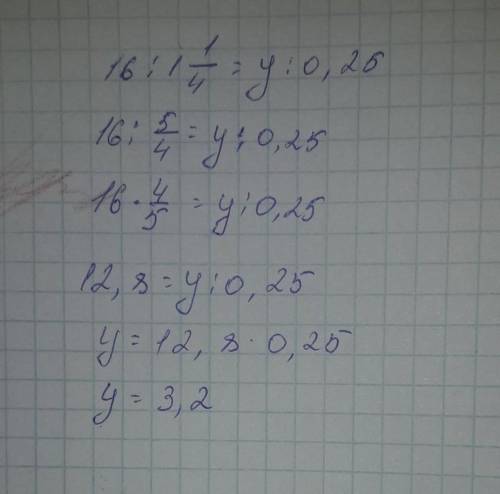 16 : 1 1/4 = y : 0,25
16 : 5/4 = y : 0,25
16 · 4/5 = y : 0,25
12,8 = y : 0,25
y = 12,8 · 0,25
y = 3,2